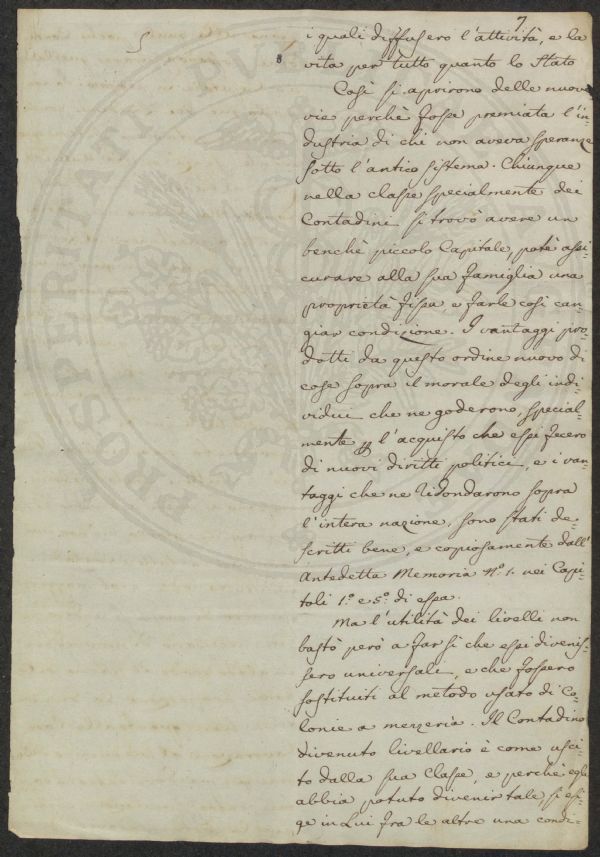 7
5
i quali diffusero l'attività, e la
vita per tutto quanto lo Stato
Così si aprirono delle nuove
vie perchè fosse premiata l'in=
dustria di chi non aveva speranze
sotto l'antico sistema. Chiunque
nella classe specialmente dei
Contadini si trovò avere un
benchè piccolo Capitale, potè assi
curare alla sua famiglia una
proprietà fissa, e farle così can=
giar condizione. I vantaggi pro=
dotti da questo ordine nuovo di
cose sopra il morale degli indi=
vidui che ne goderono, special=
mente l'acquisto che essi fecero
di nuovi diritti politici, e i van=
taggi che ne ridondarono sopra
l'intera nazione, sono stati de=
scritti bene, e copiosamente dall'
Antedetta Memoria N.º 1. nei Capi=
toli 1.º e 5.º di essa.
Ma l'utilità dei livelli non
bastò però a far sì che essi divenis=
sero universali, e che fossero
sostituiti al metodo usato di Co=
lonie a mezzeria. Il Contadino
divenuto livellario è come usci=
to dalla sua Classe, e perchè egli
abbia potuto divenir tale, si esi=
ge in Lui fra le altre una condi=
PROSPERITATI PVBLICAE